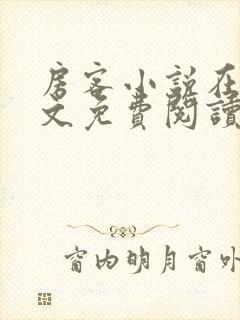 房客小说在
文免费閱讀
窗内明月窗外